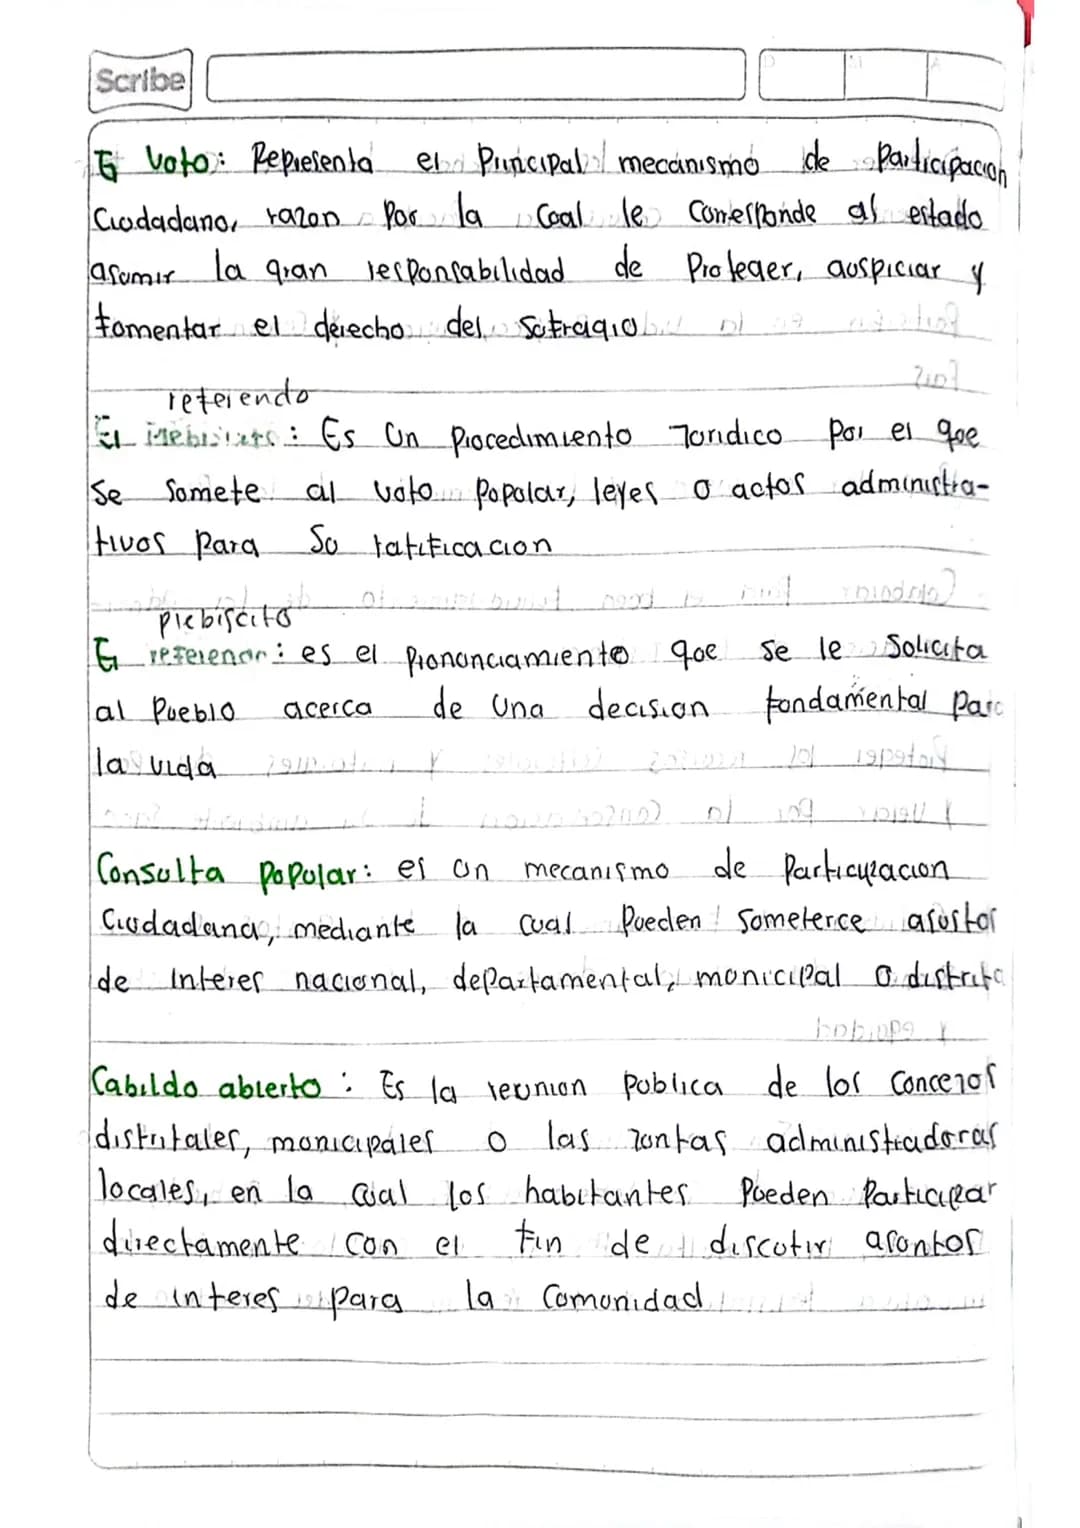 Scribe
D M A
El Voto: Representa el Principal mecanismo de Participacion
Ciudadano, razon Por la Coal le Corresponde al estado
asumir la gran responsabilidad de Proteger, auspiciar y
fomentar el derecho del Sufragio
referendo
El : Es Un Procedimiento Juridico Por el que
Se Somete al voto Popular, leyes o actos administra-
tivos Para Su ratificacion
Plebiscito
El : es el Pronunciamiento que se le Solicita
al Pueblo acerca de Una decision fundamental Para
la vida
Consulta Popular: es un mecanismo de Participacion
Ciudadana, mediante la cual Pueden Someterce asustos
de Interes nacional, departamental, municipal o distrital
Cabildo abierto : Es la reunion Publica de los Concejos
distritales, municipales o las Juntas administradoras
locales, en la cual los habitantes Pueden Participar
directamente con el fin de discutir asuntos
de interes para la Comunidad